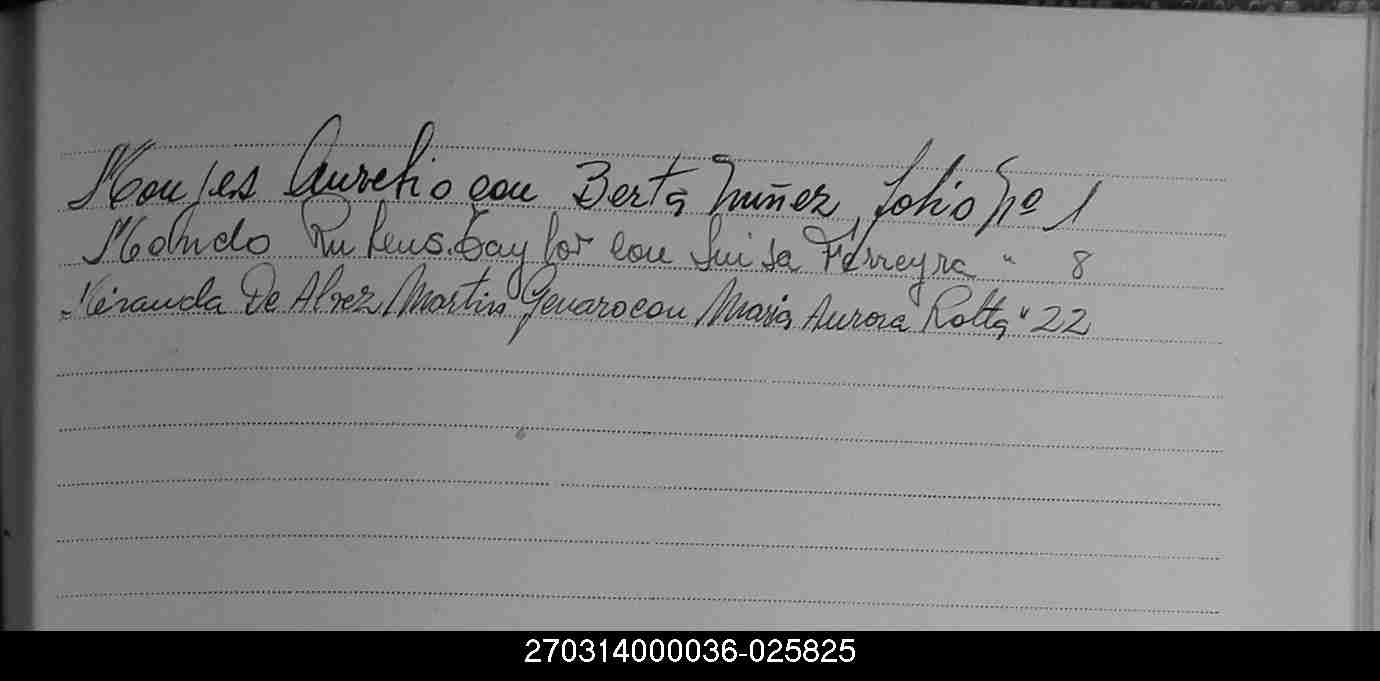 Monjes Aurelio con Berta Nuñez, folio Nº 1
Rubens Taylor con Luisa Ferreyra " 8
Miranda De Alvez, Martin Genaro con Maria Aurora Rotta " 22
270314000036-025825